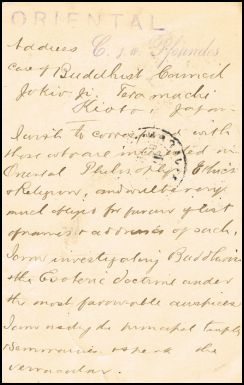 ORIENTAL
Address C. J. W. Pfoundes
care of Buddhist Council
Jokio Ji, Tera machi
Kioto Japan
I wish to corres with
those who are interested in
Oriental Philosophy Ethics
& Religion, and will be very
much obliged for favour of list
of names & addresses of such.
I am investigating Buddhism
& the Esoteric doctrine under
the most favourable auspices
I am residing principal temple
& seminaries & speak the
vernacular.